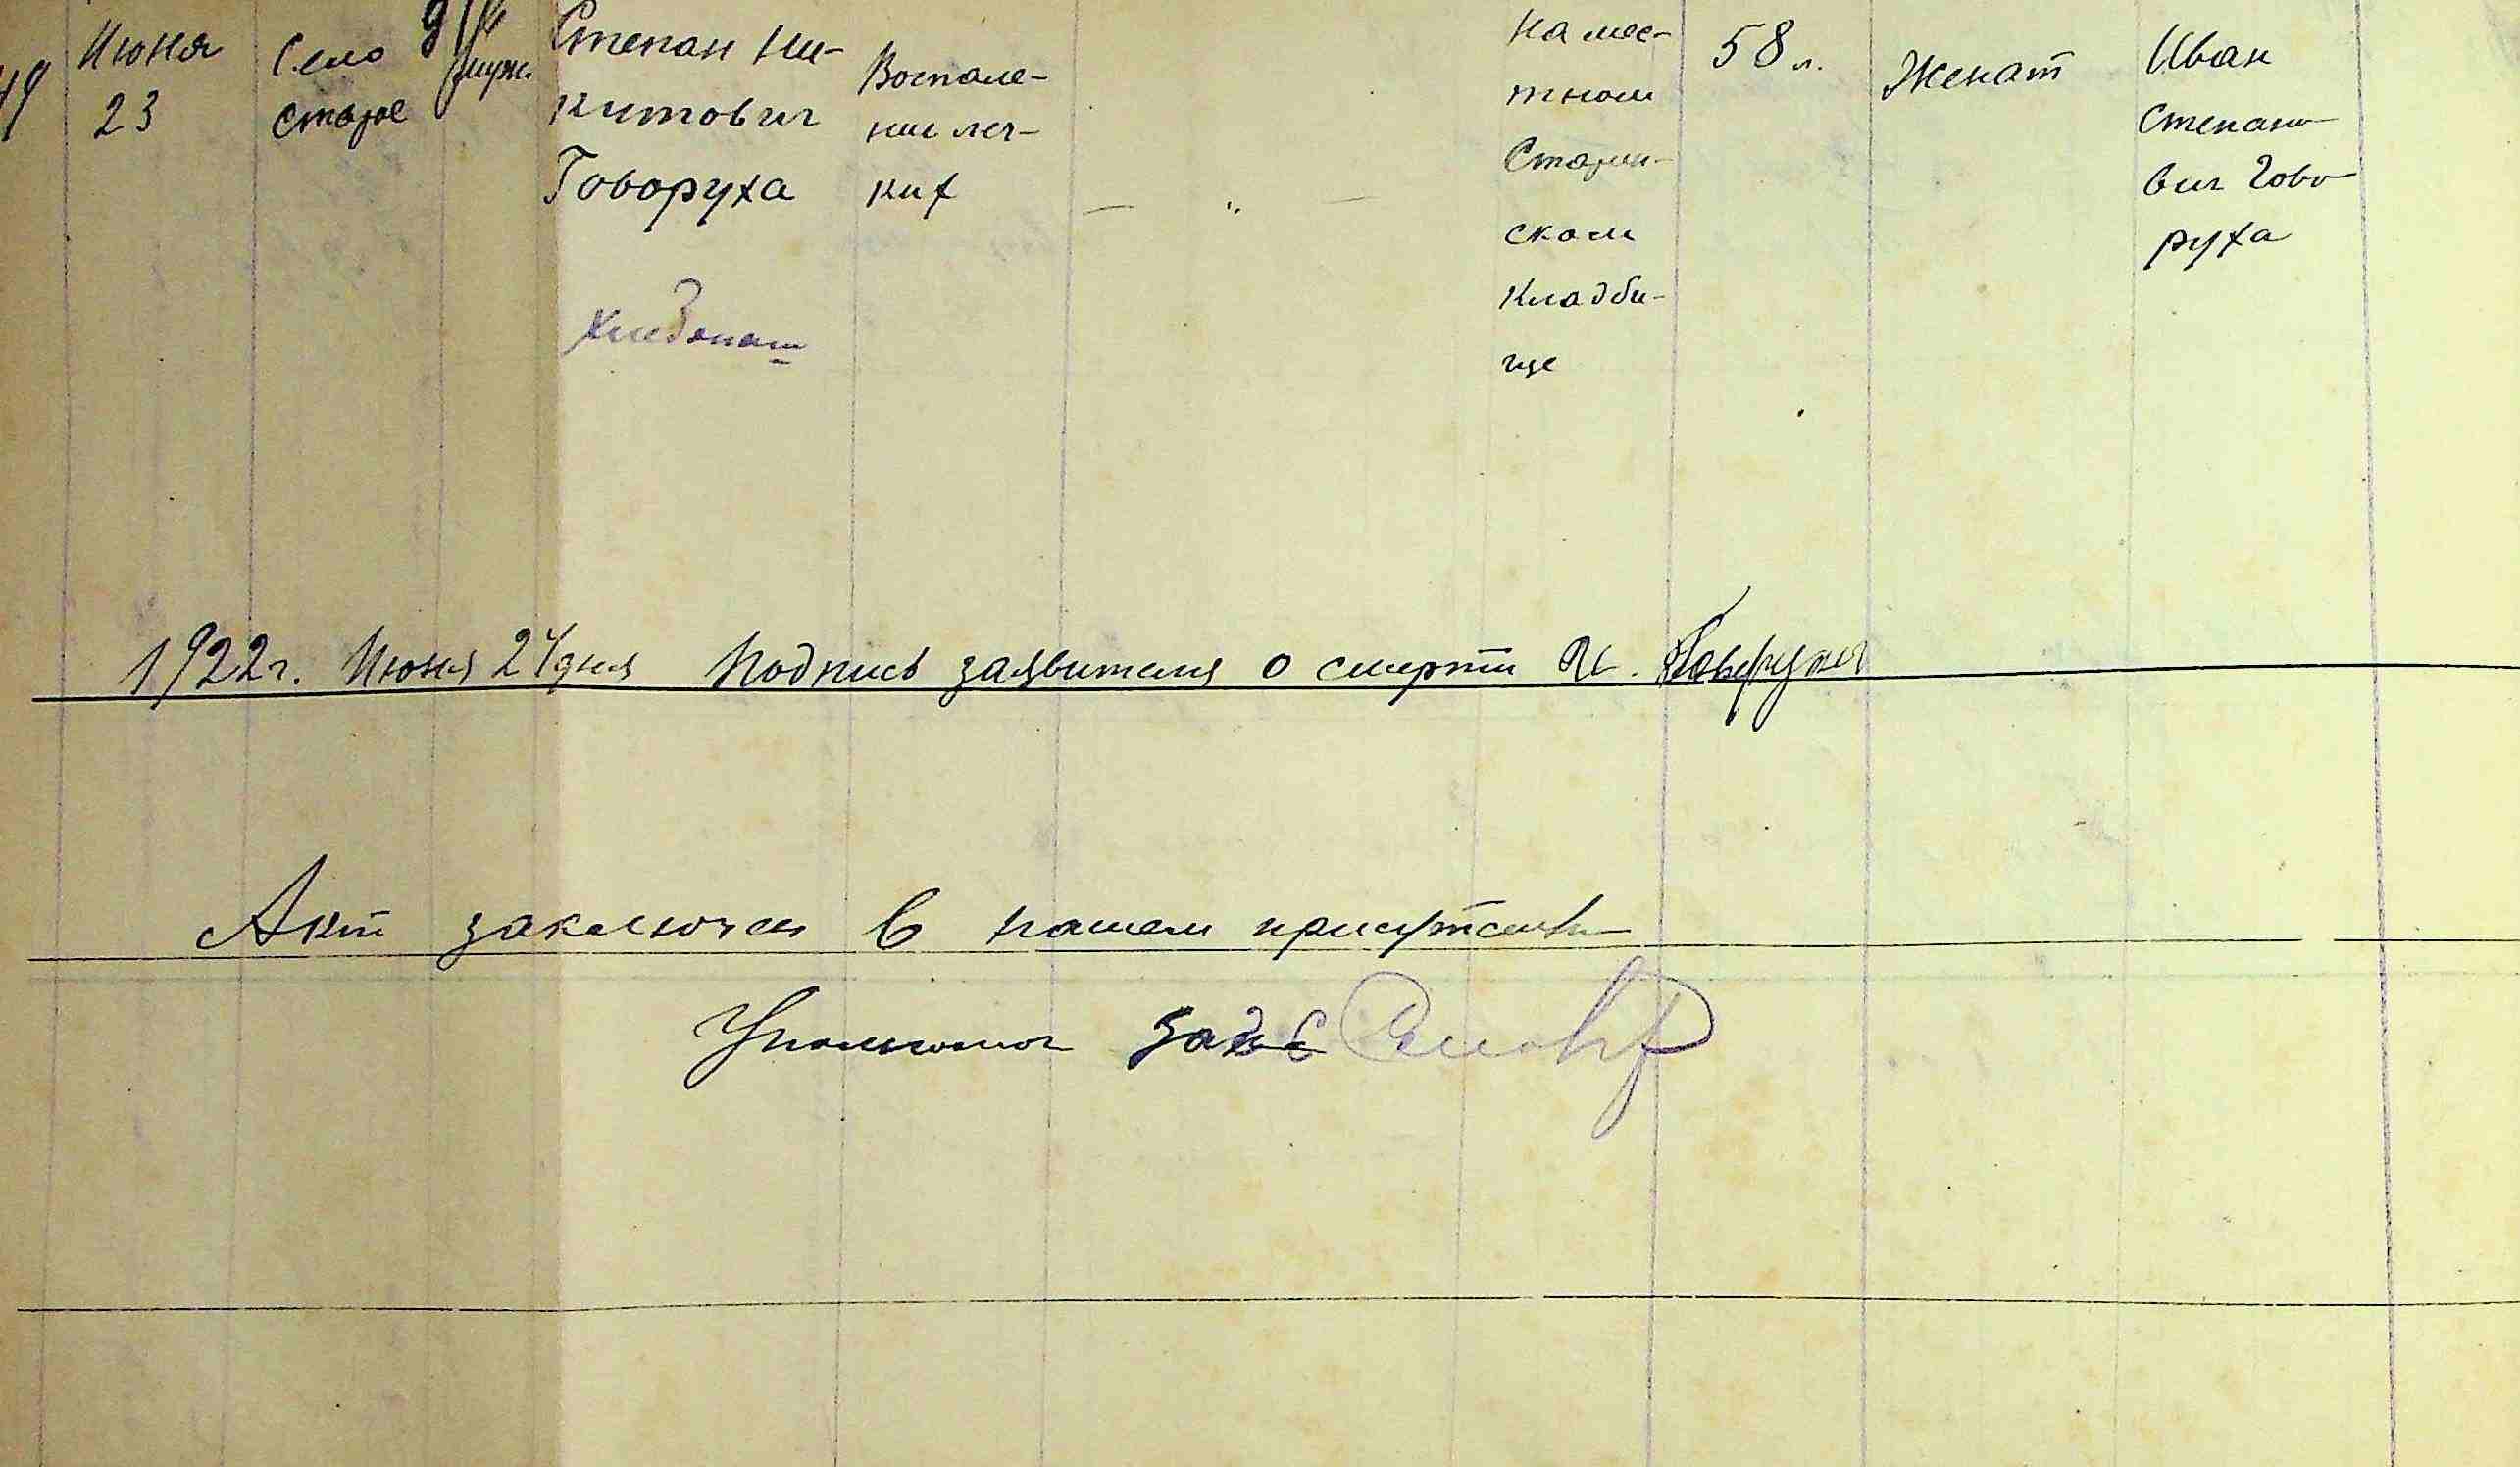 Июня
23
Село
Старое
муж.
Степан Ни-
китович
Говоруха
Хлебопаш
Воспале-
ние лег-
ких
— " —
На мес-
тном
Старин-
ском
Кладби-
ще
58 л.
Женат
Иван
Степано
вич Гово
руха
1922 г. Июня 24 дня Подпись заявителя о смерти И. Говоруха
Акт заключен в нашем присутстви